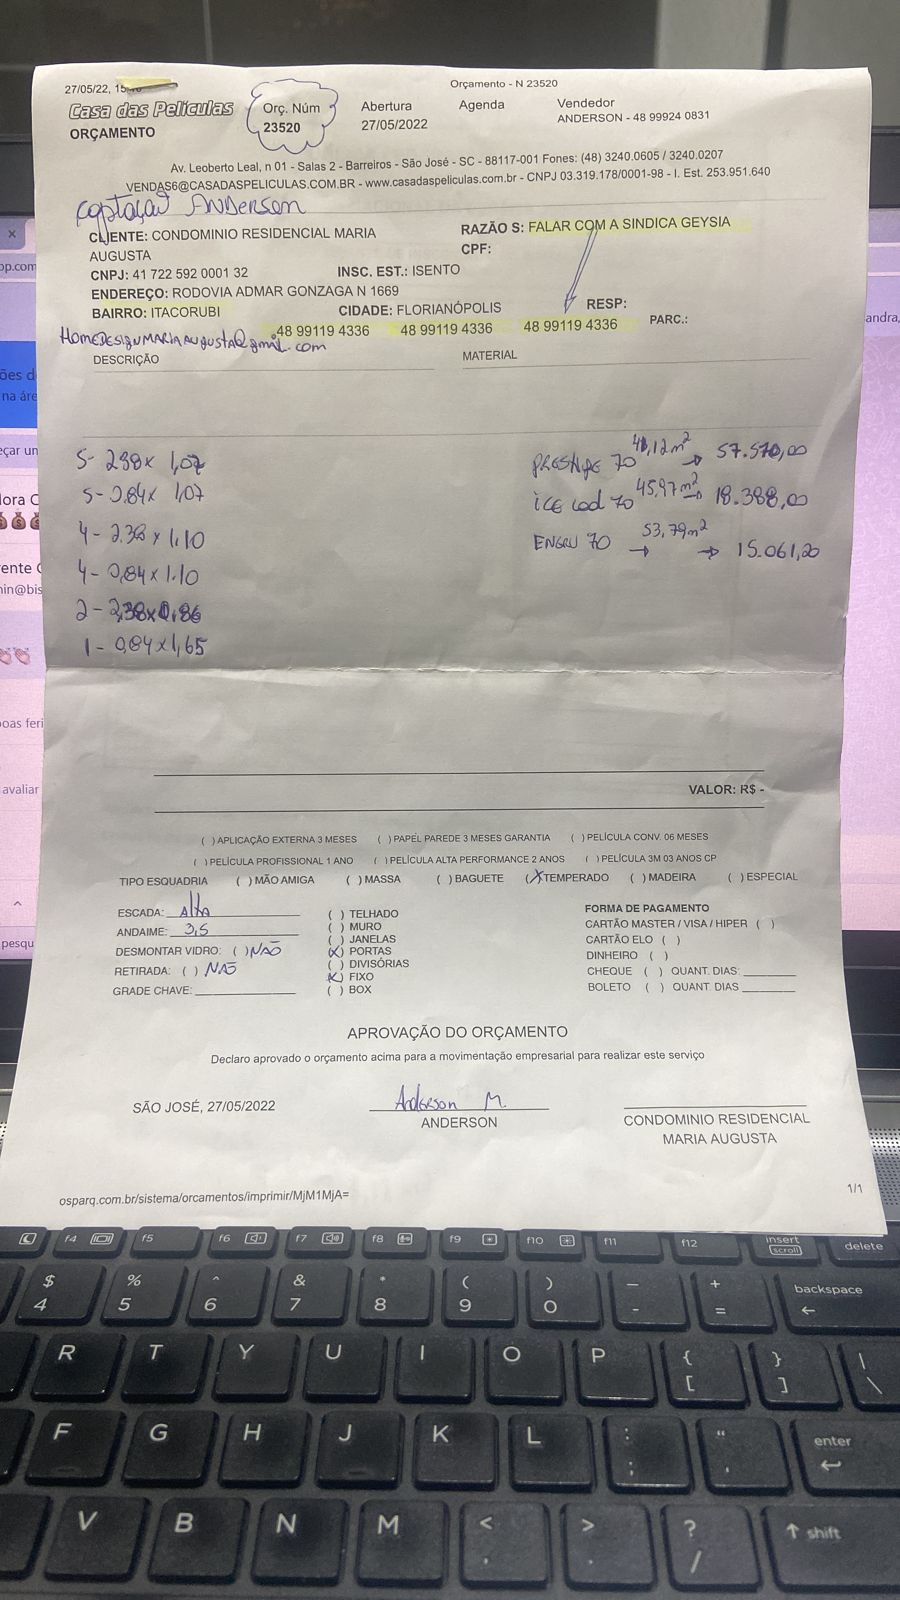 27/05/22, 15
Orçamento - N 23520
Casa das Películas
ORÇAMENTO
Orç. Núm
23520
Abertura
27/05/2022
Agenda
Vendedor
ANDERSON - 48 99924 0831
Av. Leoberto Leal, n 01 - Salas 2 - Barreiros - São José - SC - 88117-001 Fones: (48) 3240.0605 / 3240.0207
VENDAS6@CASADASPELICULAS.COM.BR - www.casadaspeliculas.com.br - CNPJ 03.319.178/0001-98 - I. Est. 253.951.640
Captação Anderson
CLIENTE: CONDOMINIO RESIDENCIAL MARIA
AUGUSTA
RAZÃO S: FALAR COM A SINDICA GEYSIA
CPF:
CNPJ: 41 722 592 0001 32
INSC. EST.: ISENTO
ENDEREÇO: RODOVIA ADMAR GONZAGA N 1669
BAIRRO: ITACORUBI
CIDADE: FLORIANÓPOLIS
RESP:
48 99119 4336 48 99119 4336 48 99119 4336
PARC.:
HOMEDESIGNMARIAAUGUSTA@gmail.com
DESCRIÇÃO
MATERIAL
5- 2,38 x 1,07
5- 0,84 x 1,07
4- 2,38 x 1,10
4- 0,84 x 1,10
2- 2,38 x 0,86
1- 0,84 x 1,65
PRESTIGE 70 41,12m² → 57.570,00
ICE cool 70 45,97m² → 18.388,00
70 → 53,79m² → 15.061,20
VALOR: R$ -
( ) APLICAÇÃO EXTERNA 3 MESES ( ) PAPEL PAREDE 3 MESES GARANTIA ( ) PELÍCULA CONV. 06 MESES
( ) PELÍCULA PROFISSIONAL 1 ANO ( ) PELÍCULA ALTA PERFORMANCE 2 ANOS ( ) PELÍCULA 3M 03 ANOS CP
TIPO ESQUADRIA ( ) MÃO AMIGA ( ) MASSA ( ) BAGUETE (X) TEMPERADO ( ) MADEIRA ( ) ESPECIAL
ESCADA: Alta
ANDAIME: 3,5
DESMONTAR VIDRO: ( ) NÃO
RETIRADA: ( ) NÃO
GRADE CHAVE:
( ) TELHADO
( ) MURO
( ) JANELAS
(X) PORTAS
( ) DIVISÓRIAS
(X) FIXO
( ) BOX
FORMA DE PAGAMENTO
CARTÃO MASTER / VISA / HIPER ( )
CARTÃO ELO ( )
DINHEIRO ( )
CHEQUE ( ) QUANT. DIAS:
BOLETO ( ) QUANT. DIAS
APROVAÇÃO DO ORÇAMENTO
Declaro aprovado o orçamento acima para a movimentação empresarial para realizar este serviço
SÃO JOSÉ, 27/05/2022
Anderson M.
ANDERSON
CONDOMINIO RESIDENCIAL
MARIA AUGUSTA
osparq.com.br/sistema/orcamentos/imprimir/MjM1MjA=
1/1
f4 f5 f6 f7 f8 f9 f10 f11 f12 insert (scroll) delete
$ % ^ & * ( ) _ + backspace
4 5 6 7 8 9 0 - = ←
R T Y U I O P { [ } ] | \
F G H J K L : ; " ' enter
V B N M < , > . ? / shift